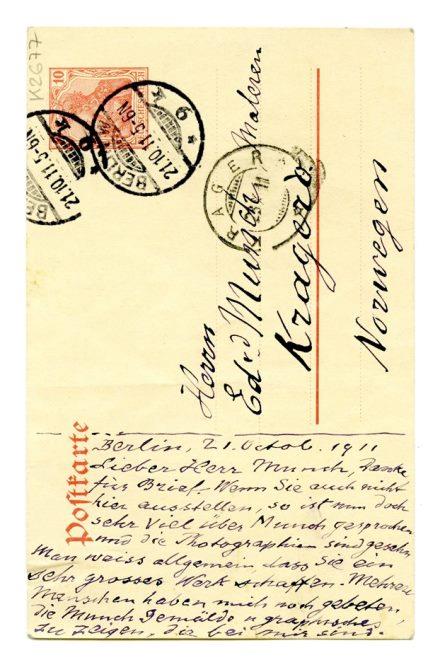 K2677
10
BERLIN
21.10.11.5-6N
BERLIN
21.10.11.5-6N
KRAGERØ
Herrn
Edvd Munch Maleren
Kragerö
Norwegen
Postkarte
Berlin, 21. Octob. 1911
Lieber Herr Munch, Danke
für Brief. Wenn Sie auch nicht
hier ausstellen, so ist nun doch
sehr viel über Munch gesprochen
und die Photographien sind gesehn
Man weiss allgemein, dass Sie ein
sehr grosses Werk schaffen. Mehrere
Menschen haben mich noch gebeten,
die Munch Gemälde u graphisches
zu zeigen, die bei mir sind.